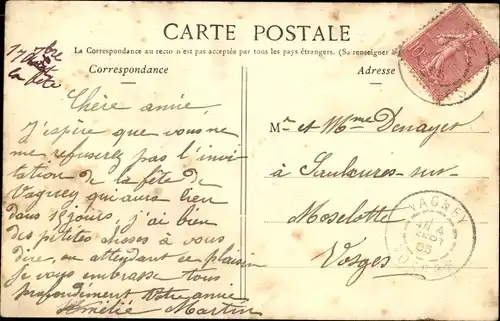 CARTE POSTALE
La Correspondance au recto n'est pas acceptée par tous les pays étrangers. (Se renseigner
Correspondance
Adresse
17
la fête
Chère amie,
J'espère que vous ne
me refuserez pas l'invi
tation de la fête de
Vagney qui aura lieu
dans 15 jours, j'ai bien
des petites choses à vous
dire, en attendant ce plaisir
je vous embrasse tous
profondément Votre amie
Amélie Martin
Mr et Mme Denayer
à Saulxures-sur-
Moselotte
Vosges
VAGNEY
10